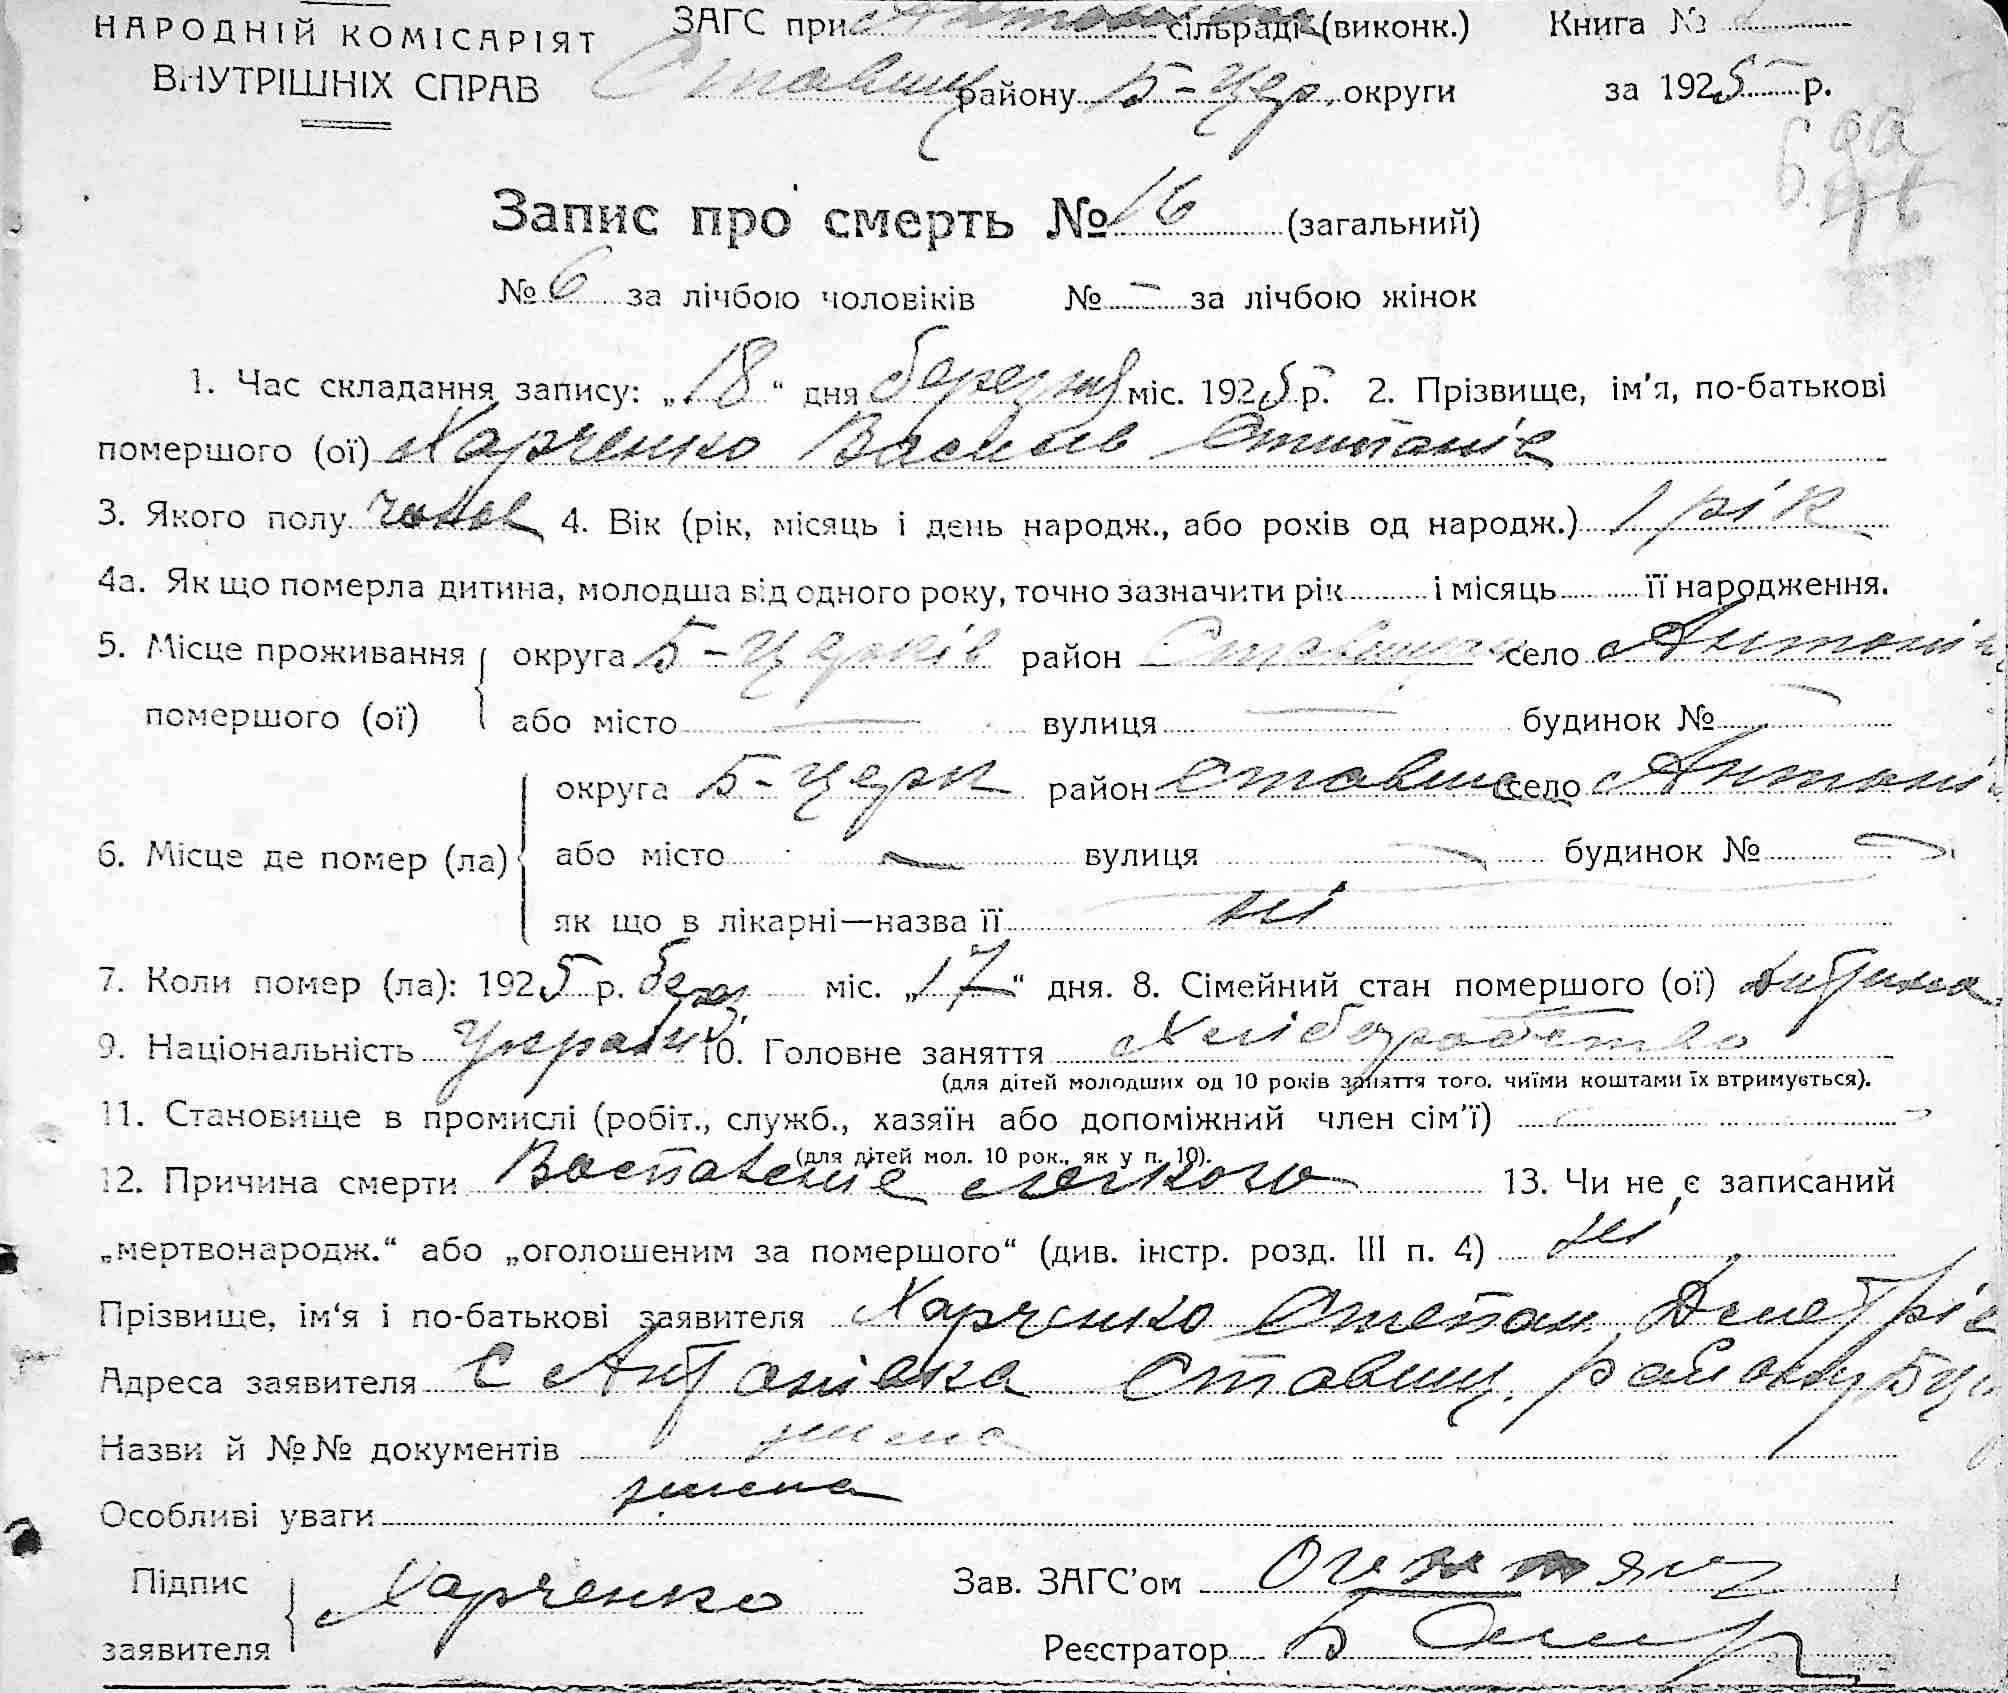 НАРОДНІЙ КОМІСАРІЯТ
ВНУТРІШНІХ СПРАВ
ЗАГС при сільраді (виконк.) Книга №
Ставищ району Б-Цер. округи за 1925 р.
Запис про смерть № 16 (загальний)
№ 6 за лічбою чоловіків № - за лічбою жінок
1. Час складання запису: „18“ дня березня міс. 1925 р. 2. Прізвище, ім'я, по-батькові
помершого (ої) Харченко Василь Степанів
3. Якого полу чолов 4. Вік (рік, місяць і день народж., або років од народж.) 1 рік
4а. Як що померла дитина, молодша від одного року, точно зазначити рік і місяць її народження.
5. Місце проживання помершого (ої) округа Б-Церків район село Антонів
або місто — вулиця — будинок № —
6. Місце де помер (ла) округа Б-Церк район Ставищ село Антонів
або місто — вулиця — будинок № —
як що в лікарні—назва її ні
7. Коли помер (ла): 1925 р. берез. міс. „17“ дня. 8. Сімейний стан помершого (ої) дитина
9. Національність Україн 10. Головне заняття Хліборобство
(для дітей молодших од 10 років заняття того, чиїми коштами їх втримується).
11. Становище в промислі (робіт., служб., хазяїн або допоміжний член сім'ї) —
(для дітей мол. 10 рок., як у п. 10).
12. Причина смерти Воспаление легкого 13. Чи не є записаний
„мертвонародж.“ або „оголошеним за помершого“ (див. інстр. розд. III п. 4) ні
Прізвище, ім'я і по-батькові заявителя Харченко Степан Дметрів
Адреса заявителя с Антонівка Ставищ. району Б Ц
Назви й №№ документів нема
Особливі уваги нема
Підпис заявителя Харченко
Зав. ЗАГС'ом
Реєстратор